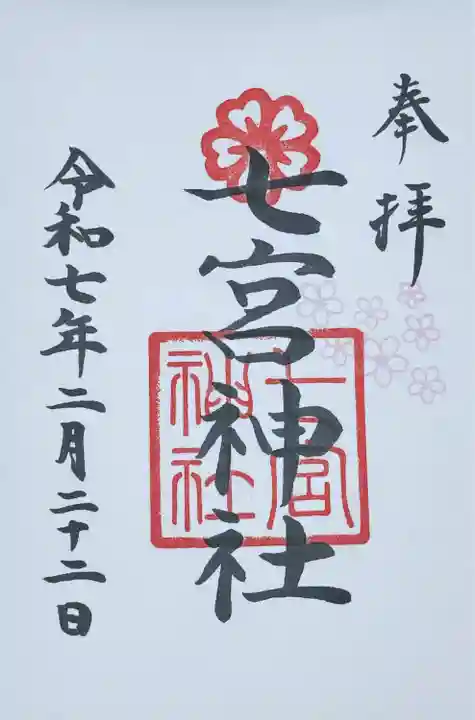 奉拝
七宮神社
七宮
神社
令和七年二月二十二日